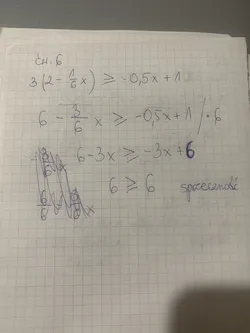 ćw. 6
3(2 - 1/6 x) ≥ -0,5x + 1
6 - 3/6 x ≥ -0,5x + 1 / · 6
6 - 3x ≥ -3x + 6
6 ≥ 6 sprzeczność